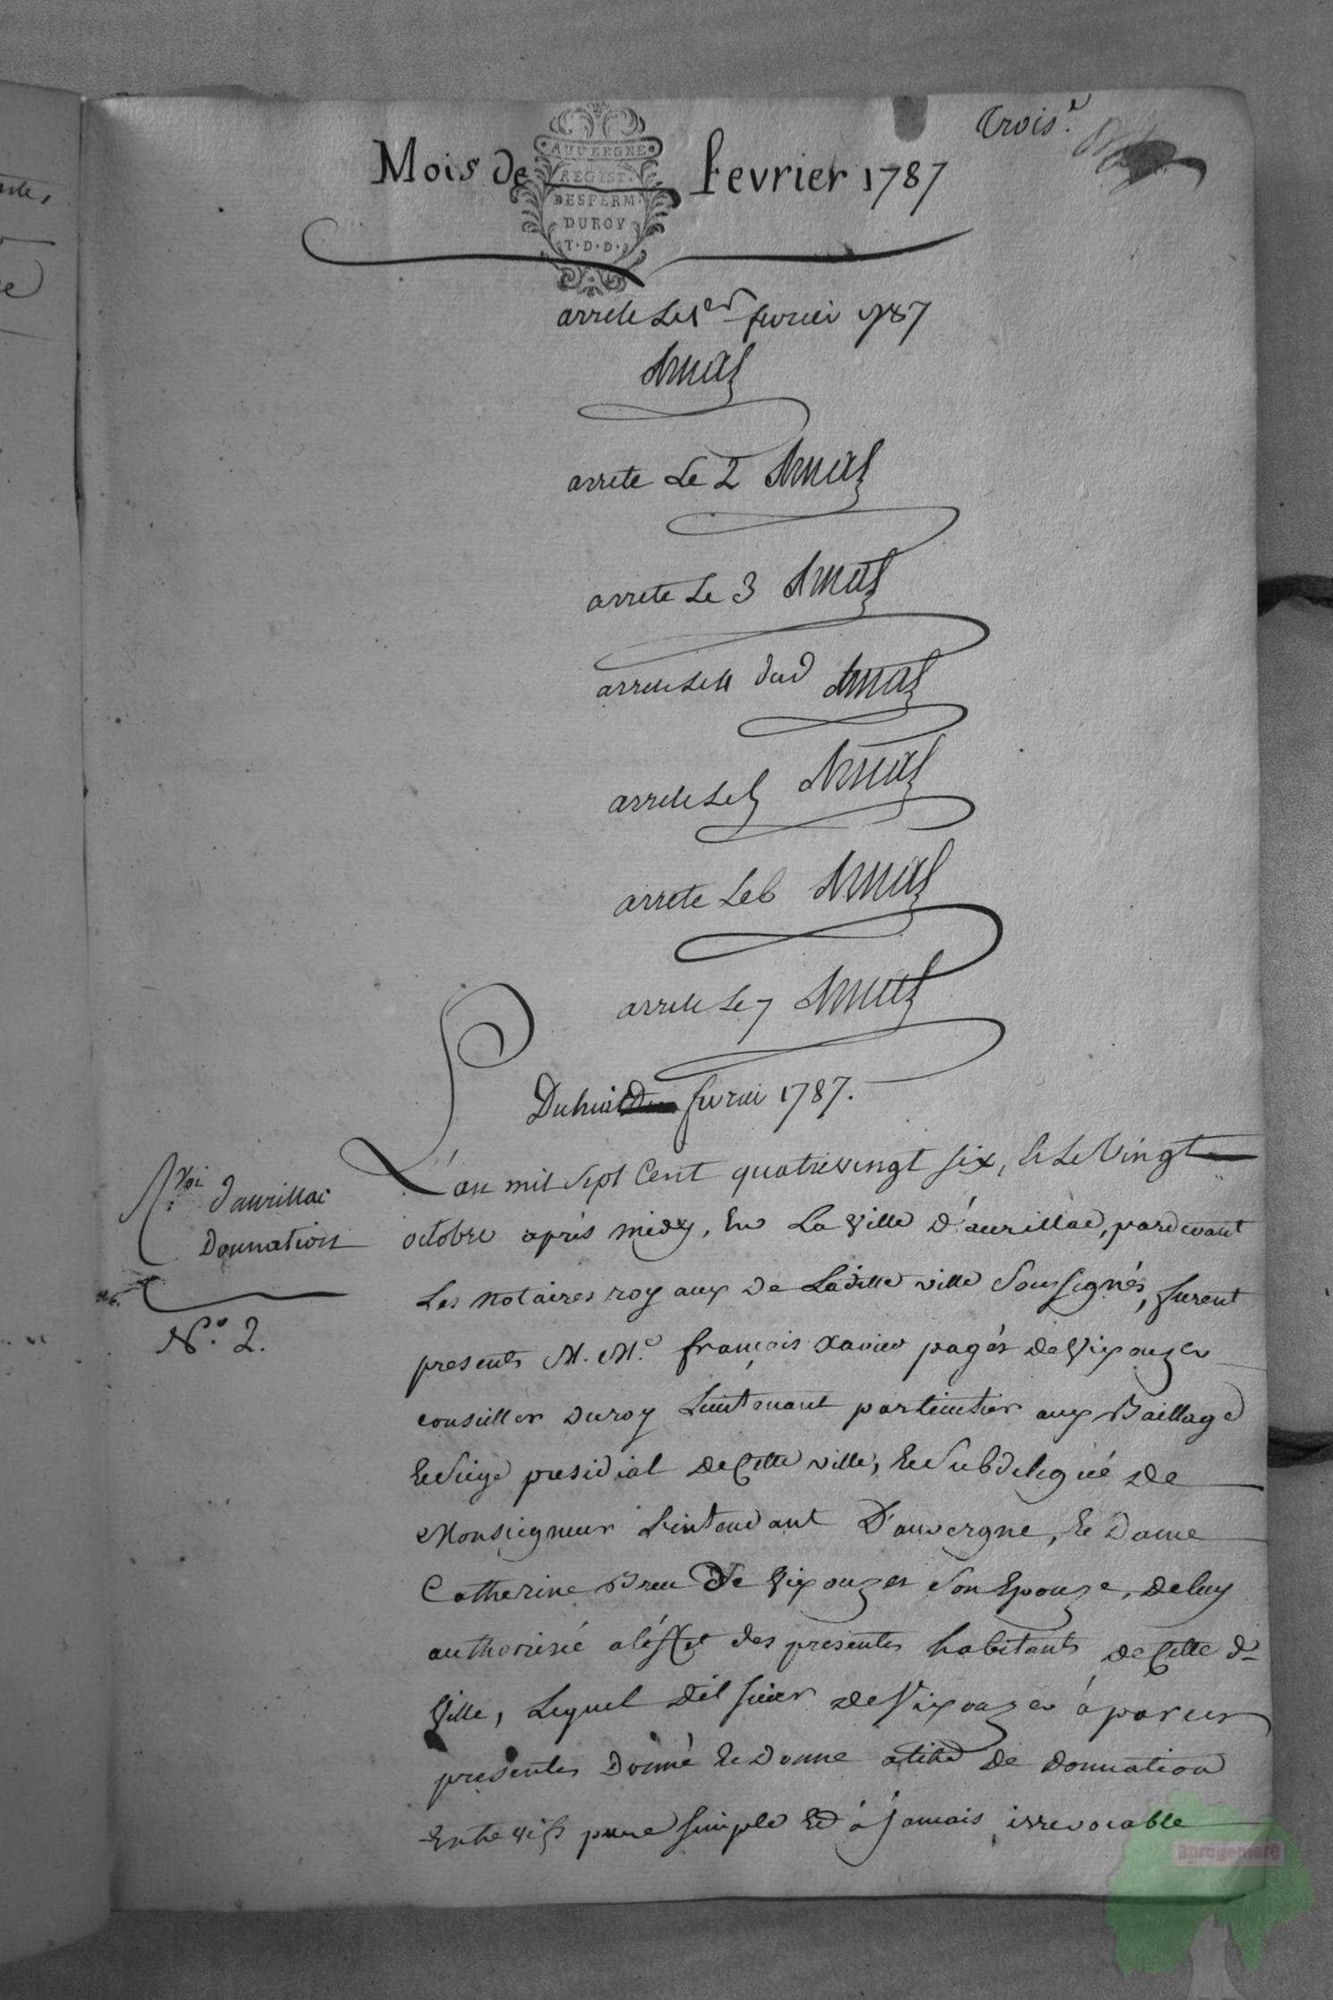 Trois.e
Mois de fevrier 1787
AUVERGNE
REGIST.
DESPERM.
DUROY
T.D.D.
arrete Le 1er fevrier 1787
arrete Le 2
arrete Le 3
arrete Le 4 dud
arrete Le 5
arrete Le 6
arrete Le 7
Du huit fevrier 1787.
L'an mil Sept Cent quatrevingt six, & Le Vingt
octobre aprés midy, En La Ville d'aurillac, pardevant
Les Notaires royaux de Laditte ville Soussignés, furent
presents M. Me. françois Xavier pagés de Vixouzes
conseiller du roy Lieutenant particulier aux Baillage
& Siege presidial de Cette ville, & Subdelegué de
Monseigneur L'intendant D'auvergne, & Dame
Catherine de Vixouzes Son Epouze, de luy
authorisée a l'effet des presentes habitants de Cette d
Ville, Lequel dit sieur de Vixouzes á par ces
presentes Donné & Donne a titre de donnation
Entre vifs pure simple Et á Jamais irrevocable
d'aurillac
Donnation
N.o 2.
aprogemere